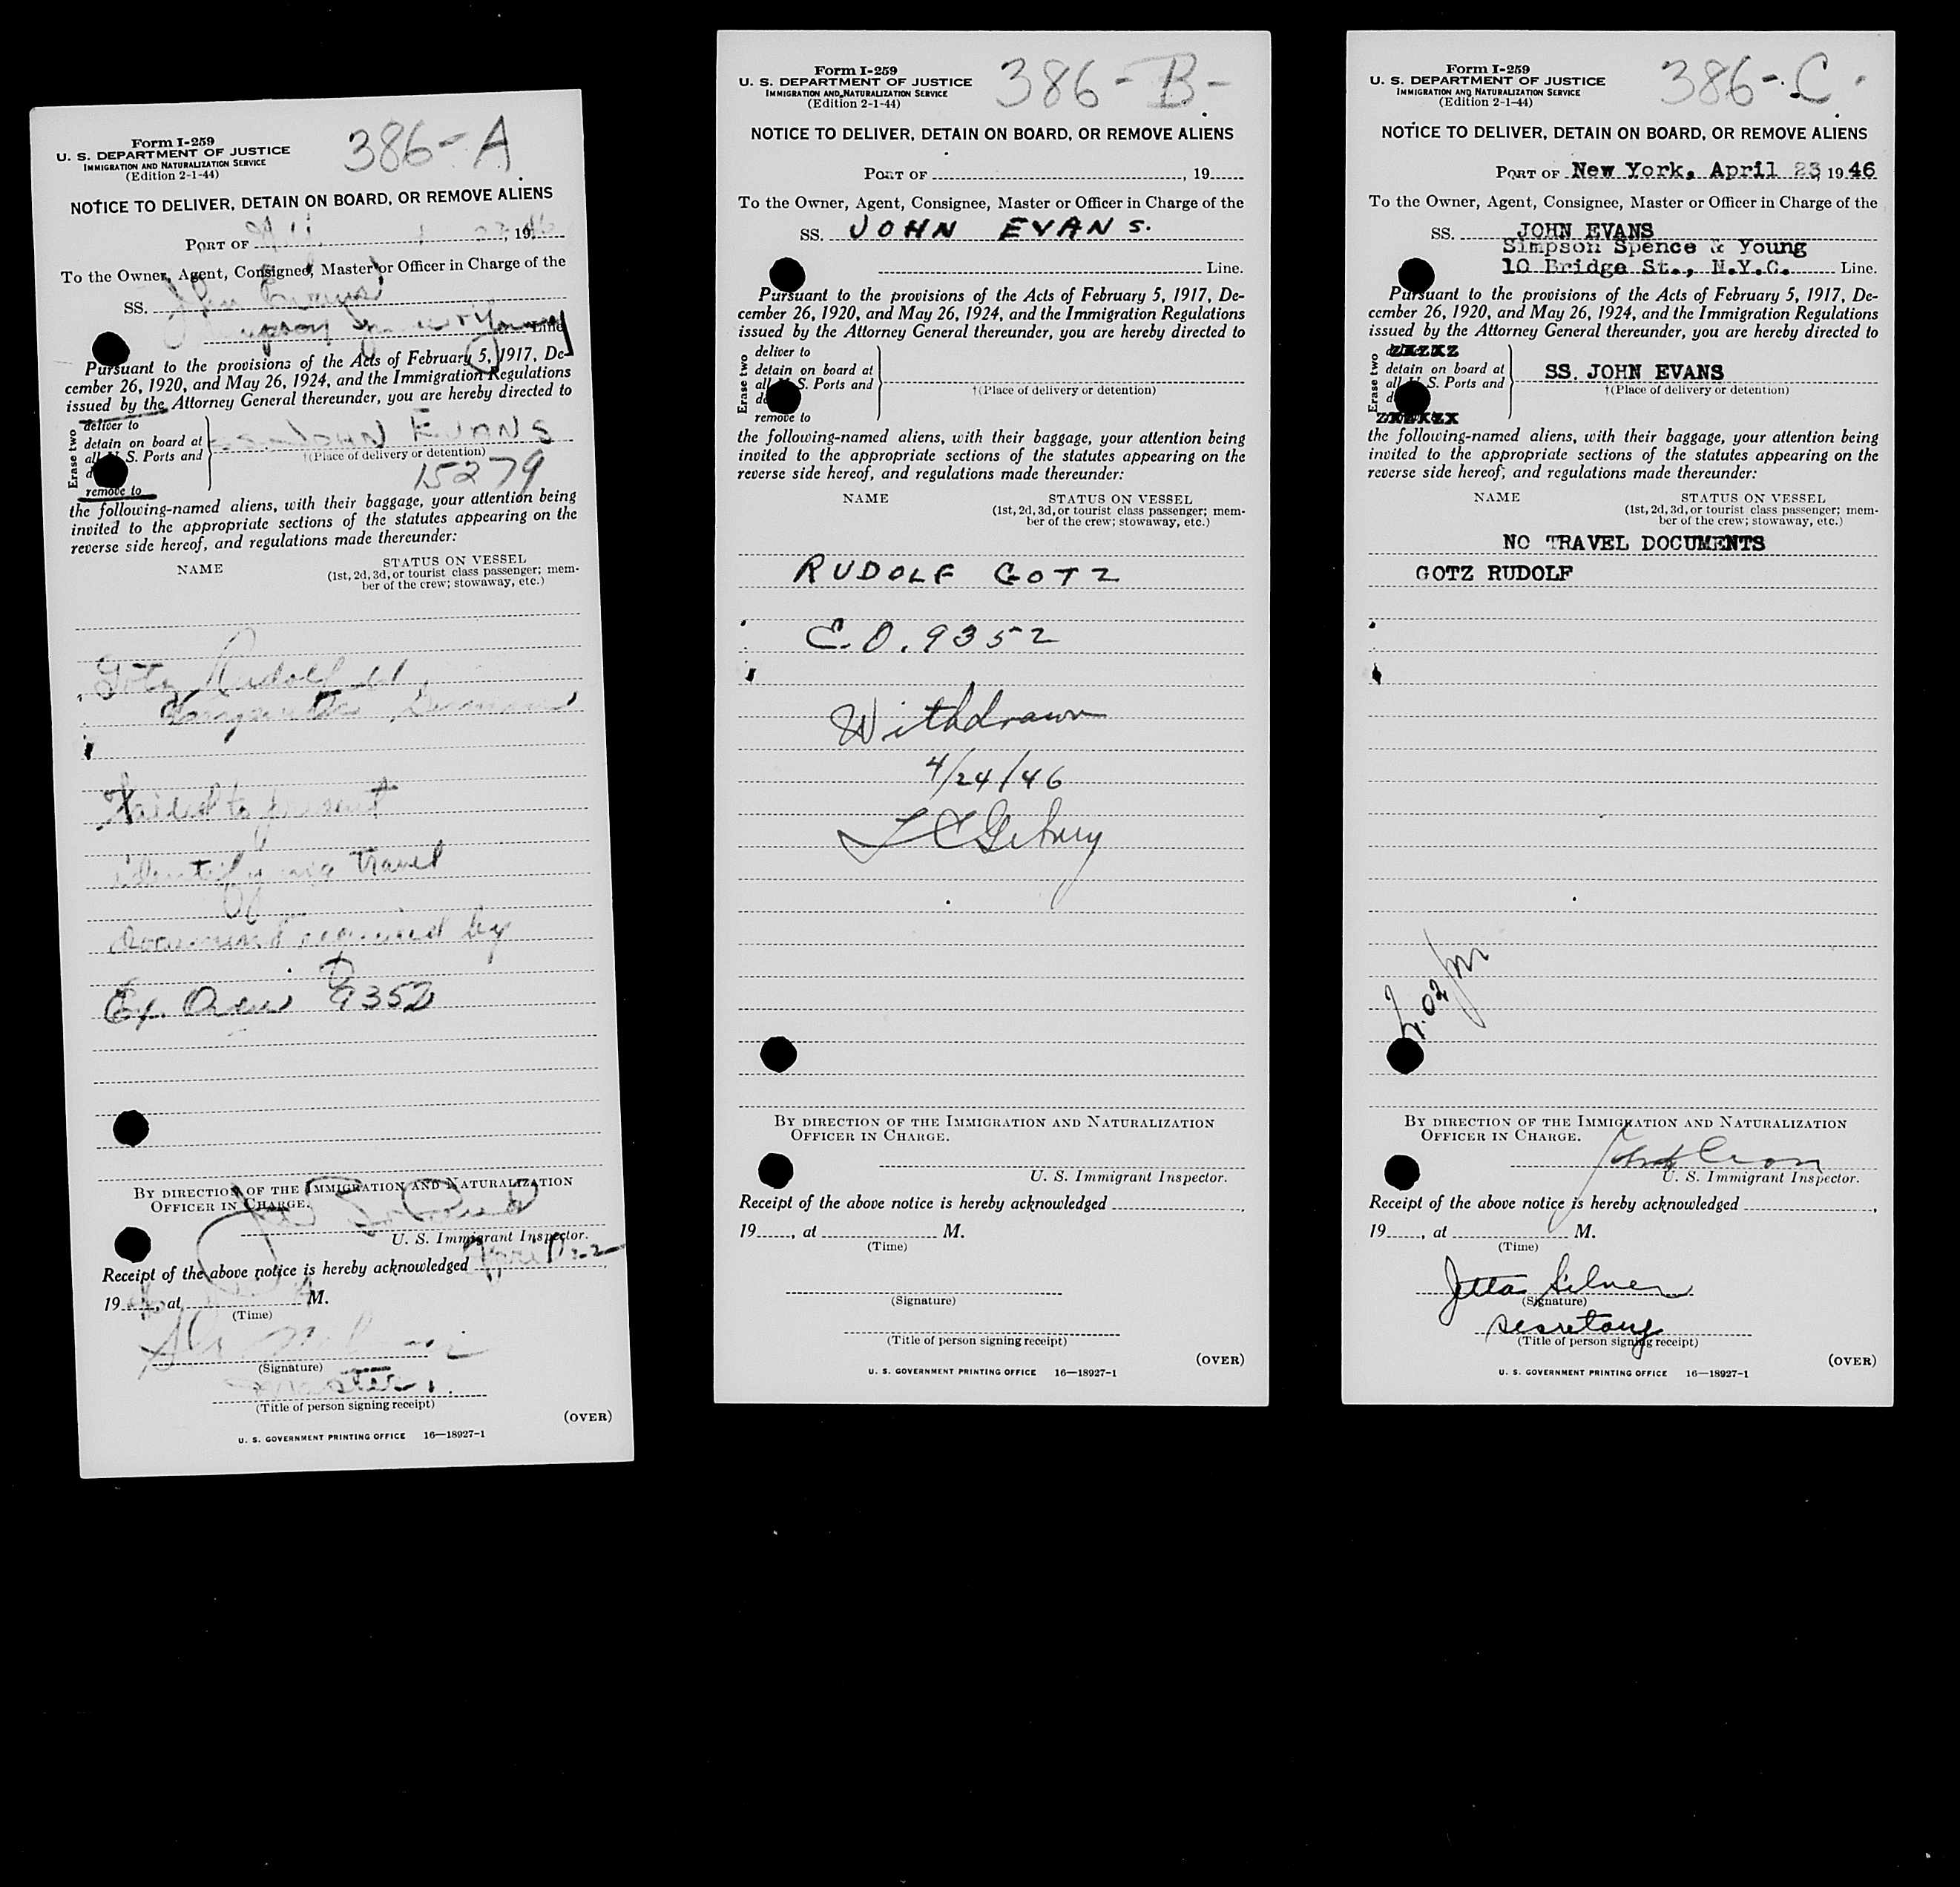 386-A
Form I-259
U. S. DEPARTMENT OF JUSTICE
IMMIGRATION AND NATURALIZATION SERVICE
(Edition 2-1-44)
NOTICE TO DELIVER, DETAIN ON BOARD, OR REMOVE ALIENS
PORT OF , 19
To the Owner, Agent, Consignee, Master or Officer in Charge of the
SS. John Evans
Line
Pursuant to the provisions of the Acts of February 5, 1917, De-
cember 26, 1920, and May 26, 1924, and the Immigration Regulations
issued by the Attorney General thereunder, you are hereby directed to
Erase two
deliver to
detain on board at
all U. S. Ports and
JOHN EVANS
†(Place of delivery or detention)
15279
remove to
the following-named aliens, with their baggage, your attention being
invited to the appropriate sections of the statutes appearing on the
reverse side hereof, and regulations made thereunder:
NAME
STATUS ON VESSEL
(1st, 2d, 3d, or tourist class passenger; mem-
ber of the crew; stowaway, etc.)
Gotz Rudolf
Failed to present
identifying travel
document required by
Ex. Order 9352
BY DIRECTION OF THE IMMIGRATION AND NATURALIZATION
OFFICER IN CHARGE.
U. S. Immigrant Inspector.
Receipt of the above notice is hereby acknowledged April 22
19 , at M.
(Time)
(Signature)
Master
(Title of person signing receipt)
(OVER)
U. S. GOVERNMENT PRINTING OFFICE 16—18927-1
386-B-
Form I-259
U. S. DEPARTMENT OF JUSTICE
IMMIGRATION AND NATURALIZATION SERVICE
(Edition 2-1-44)
NOTICE TO DELIVER, DETAIN ON BOARD, OR REMOVE ALIENS
PORT OF , 19
To the Owner, Agent, Consignee, Master or Officer in Charge of the
SS. JOHN EVANS.
Line.
Pursuant to the provisions of the Acts of February 5, 1917, De-
cember 26, 1920, and May 26, 1924, and the Immigration Regulations
issued by the Attorney General thereunder, you are hereby directed to
Erase two
deliver to
detain on board at
all U. S. Ports and
†(Place of delivery or detention)
remove to
the following-named aliens, with their baggage, your attention being
invited to the appropriate sections of the statutes appearing on the
reverse side hereof, and regulations made thereunder:
NAME
STATUS ON VESSEL
(1st, 2d, 3d, or tourist class passenger; mem-
ber of the crew; stowaway, etc.)
RUDOLF GOTZ
E.O. 9352
Withdrawn
4/24/46
BY DIRECTION OF THE IMMIGRATION AND NATURALIZATION
OFFICER IN CHARGE.
U. S. Immigrant Inspector.
Receipt of the above notice is hereby acknowledged
19 , at M.
(Time)
(Signature)
(Title of person signing receipt)
(OVER)
U. S. GOVERNMENT PRINTING OFFICE 16—18927-1
386-C
Form I-259
U. S. DEPARTMENT OF JUSTICE
IMMIGRATION AND NATURALIZATION SERVICE
(Edition 2-1-44)
NOTICE TO DELIVER, DETAIN ON BOARD, OR REMOVE ALIENS
PORT OF New York, April 23, 1946
To the Owner, Agent, Consignee, Master or Officer in Charge of the
SS. JOHN EVANS
Simpson Spence & Young
10 Bridge St., N.Y.C. Line.
Pursuant to the provisions of the Acts of February 5, 1917, De-
cember 26, 1920, and May 26, 1924, and the Immigration Regulations
issued by the Attorney General thereunder, you are hereby directed to
Erase two
detain on board at
all U. S. Ports and
SS. JOHN EVANS
†(Place of delivery or detention)
the following-named aliens, with their baggage, your attention being
invited to the appropriate sections of the statutes appearing on the
reverse side hereof, and regulations made thereunder:
NAME
STATUS ON VESSEL
(1st, 2d, 3d, or tourist class passenger; mem-
ber of the crew; stowaway, etc.)
NO TRAVEL DOCUMENTS
GOTZ RUDOLF
BY DIRECTION OF THE IMMIGRATION AND NATURALIZATION
OFFICER IN CHARGE.
U. S. Immigrant Inspector.
Receipt of the above notice is hereby acknowledged
19 , at M.
(Time)
Jetta Silver
(Signature)
secretary
(Title of person signing receipt)
(OVER)
U. S. GOVERNMENT PRINTING OFFICE 16—18927-1